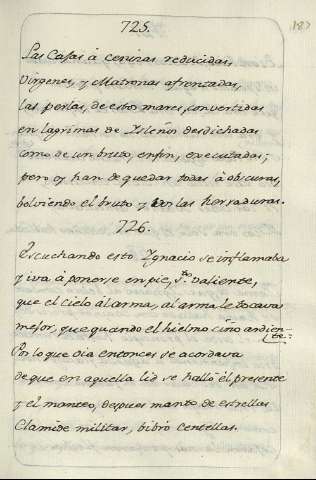 187
725.
Las Casas à cenizas reducidas,
Virgenes, y Matronas afrentadas,
las perlas, de estos mares, convertidas
en lagrimas de Isleños desdichadas
como de un bruto, enfin, executadas;
pero oy han de quedar todas à obscuras,
bolviendo el bruto y las herraduras.
726.
Escuchando esto Ygnacio se inflamaba
y iva à ponerse en pie, valiente,
que el cielo al arma, al arma le tocava
mejor, que quando el hielmo ciño ardien-
te:
Por lo que oìa entonces se acordava
de que en aquella lid se hallò èl presente
y el manteo, despues manto de estrellas
Clamide militar, bibrò centellas.